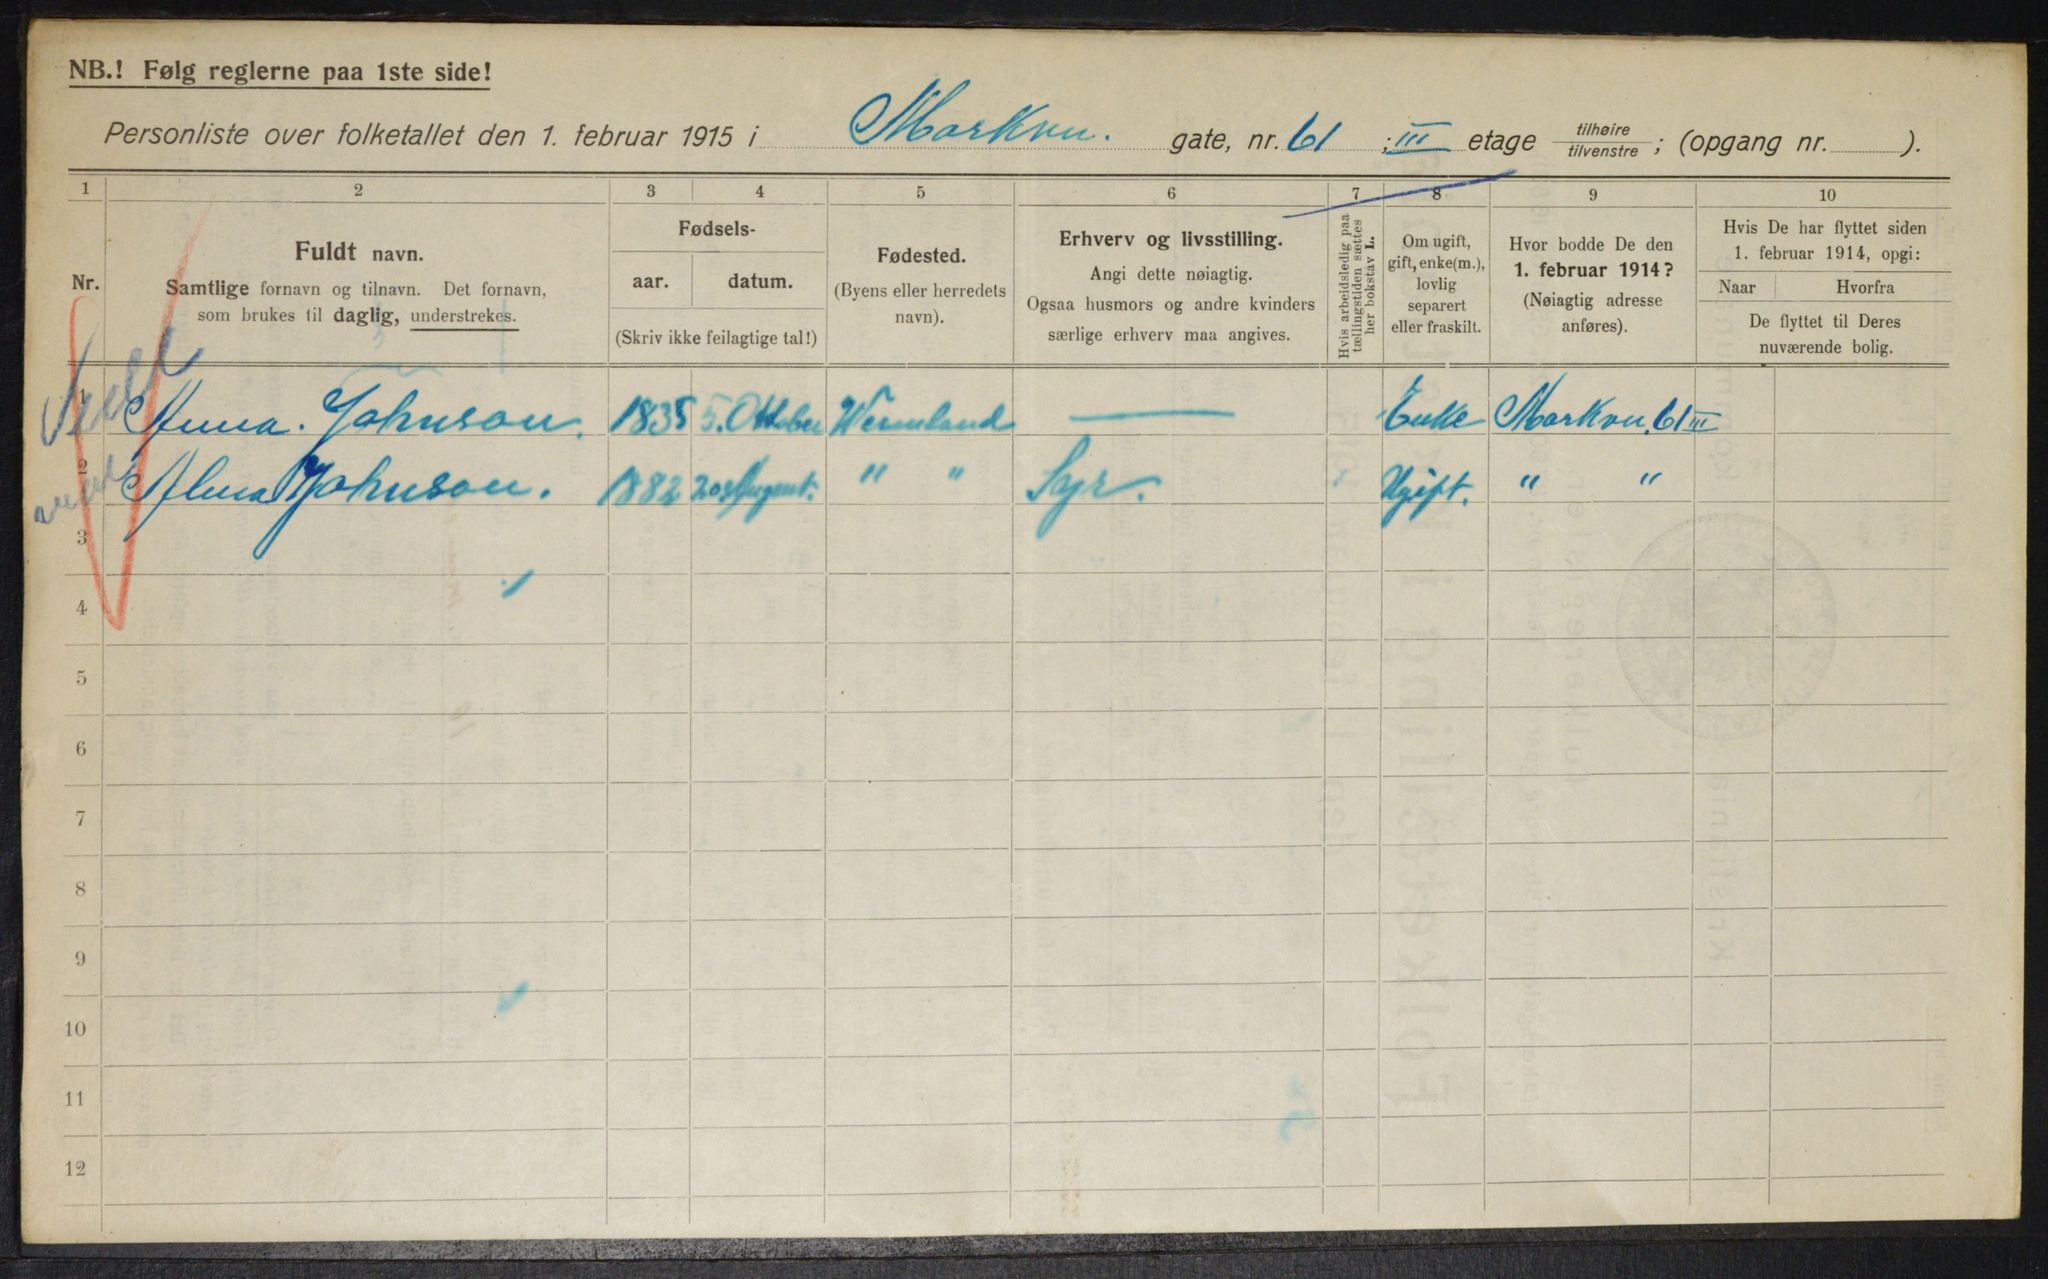 NB.! Følg reglerne paa 1ste side!
Personliste over folketallet den 1. februar 1915 i Markvn. gate, nr. 61 ; III etage tilhøire / tilvenstre ; (opgang nr. ).
1 2 3 4 5 6 7 8 9 10
Nr.
Fuldt navn.
Samtlige fornavn og tilnavn. Det fornavn,
som brukes til daglig, understrekes.
Fødsels-
aar. datum.
(Skriv ikke feilagtige tal!)
Fødested.
(Byens eller herredets
navn).
Erhverv og livsstilling.
Angi dette nøiagtig.
Ogsaa husmors og andre kvinders
særlige erhverv maa angives.
Hvis arbeidsledig paa
tællingstiden sættes
her bokstav L.
Om ugift,
gift, enke(m.),
lovlig
separert
eller fraskilt.
Hvor bodde De den
1. februar 1914?
(Nøiagtig adresse
anføres).
Hvis De har flyttet siden
1. februar 1914, opgi:
Naar Hvorfra
De flyttet til Deres
nuværende bolig.
1 Anna. Johnson. 1835 5. Oktober Wermland — Enke Markvn. 61 III
2 Alma Johnson. 1882 20 August. " " Syr. Ugift. " "
3
4
5
6
7
8
9
10
11
12